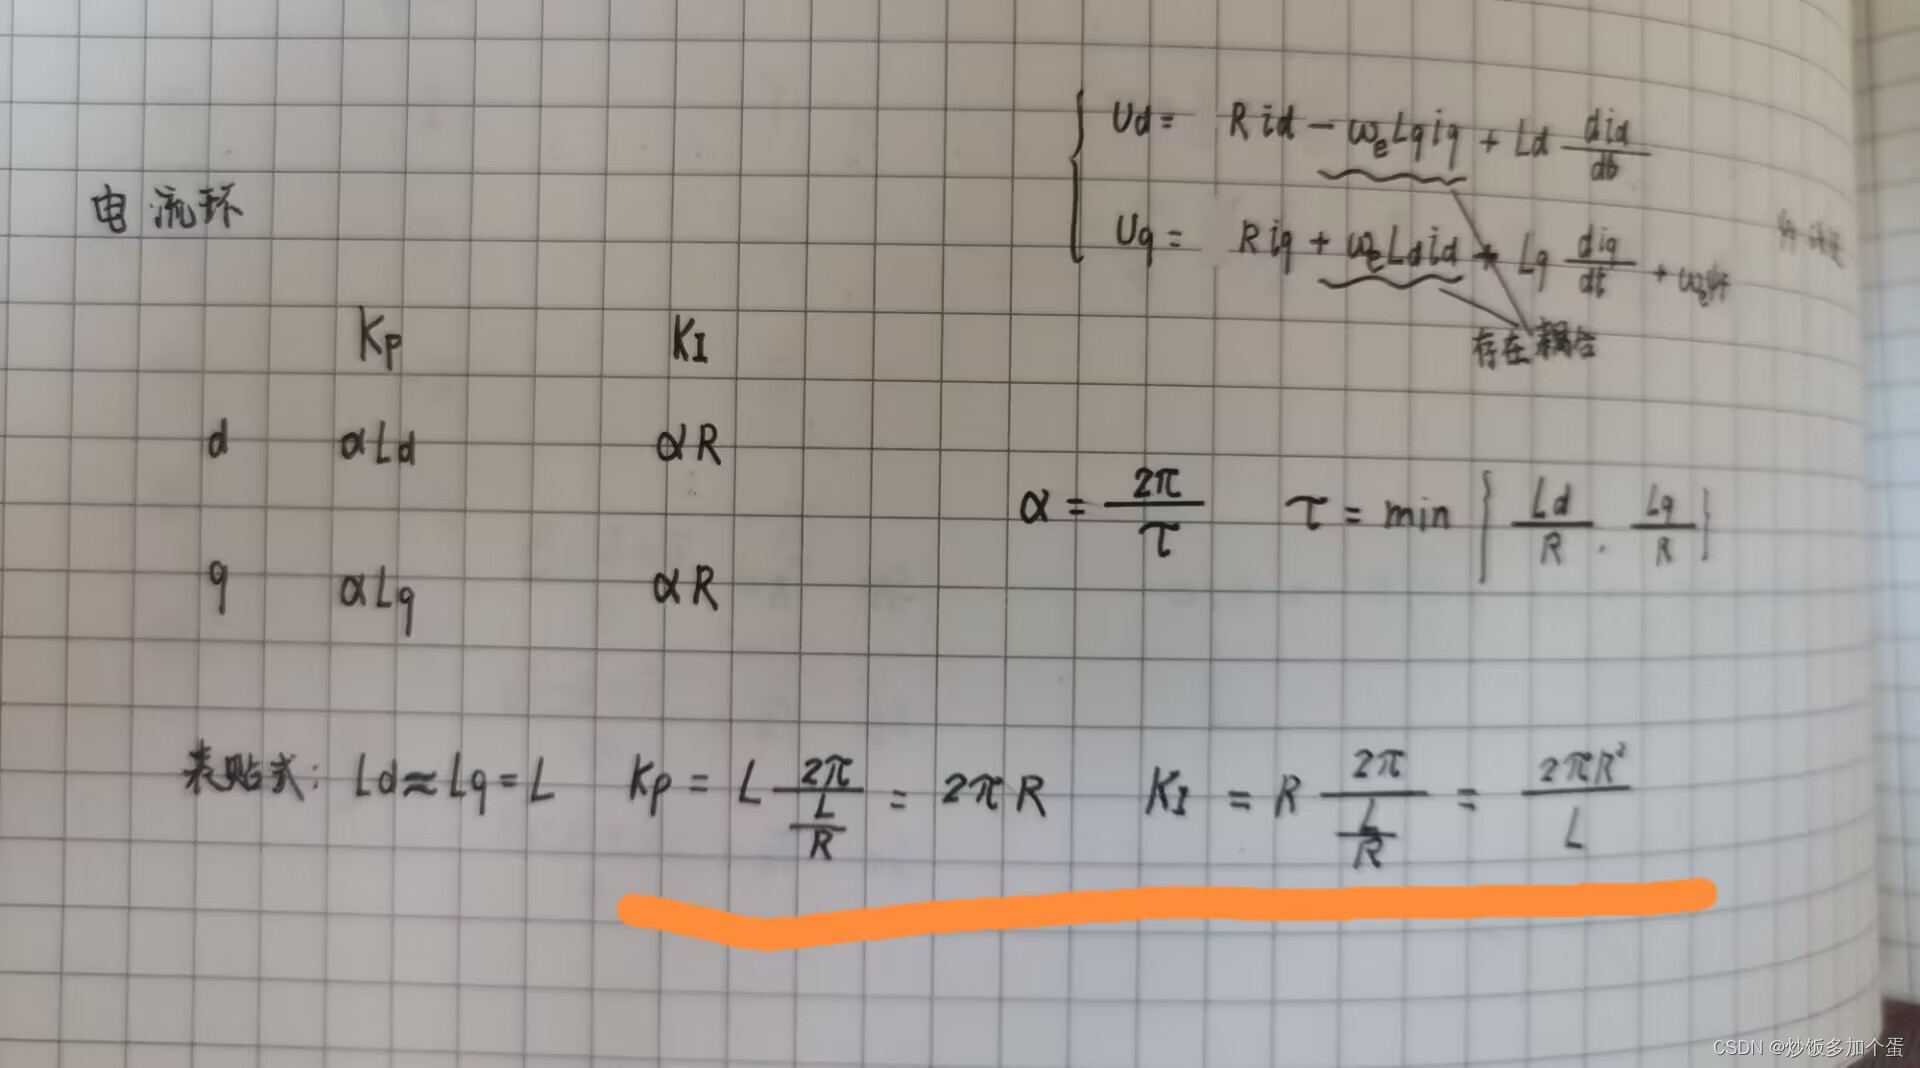 Ud = R id - ωe Lq iq + Ld did/dt
电流环
Uq = R iq + ωe Ld id + Lq diq/dt + ωe ψf
存在耦合
Kp KI
d αLd αR
α = 2π/τ τ = min { Ld/R , Lq/R }
q αLq αR
表贴式: Ld≈Lq=L Kp = L 2π/(L/R) = 2πR KI = R 2π/(L/R) = 2πR²/L
CSDN @炒饭多加个蛋